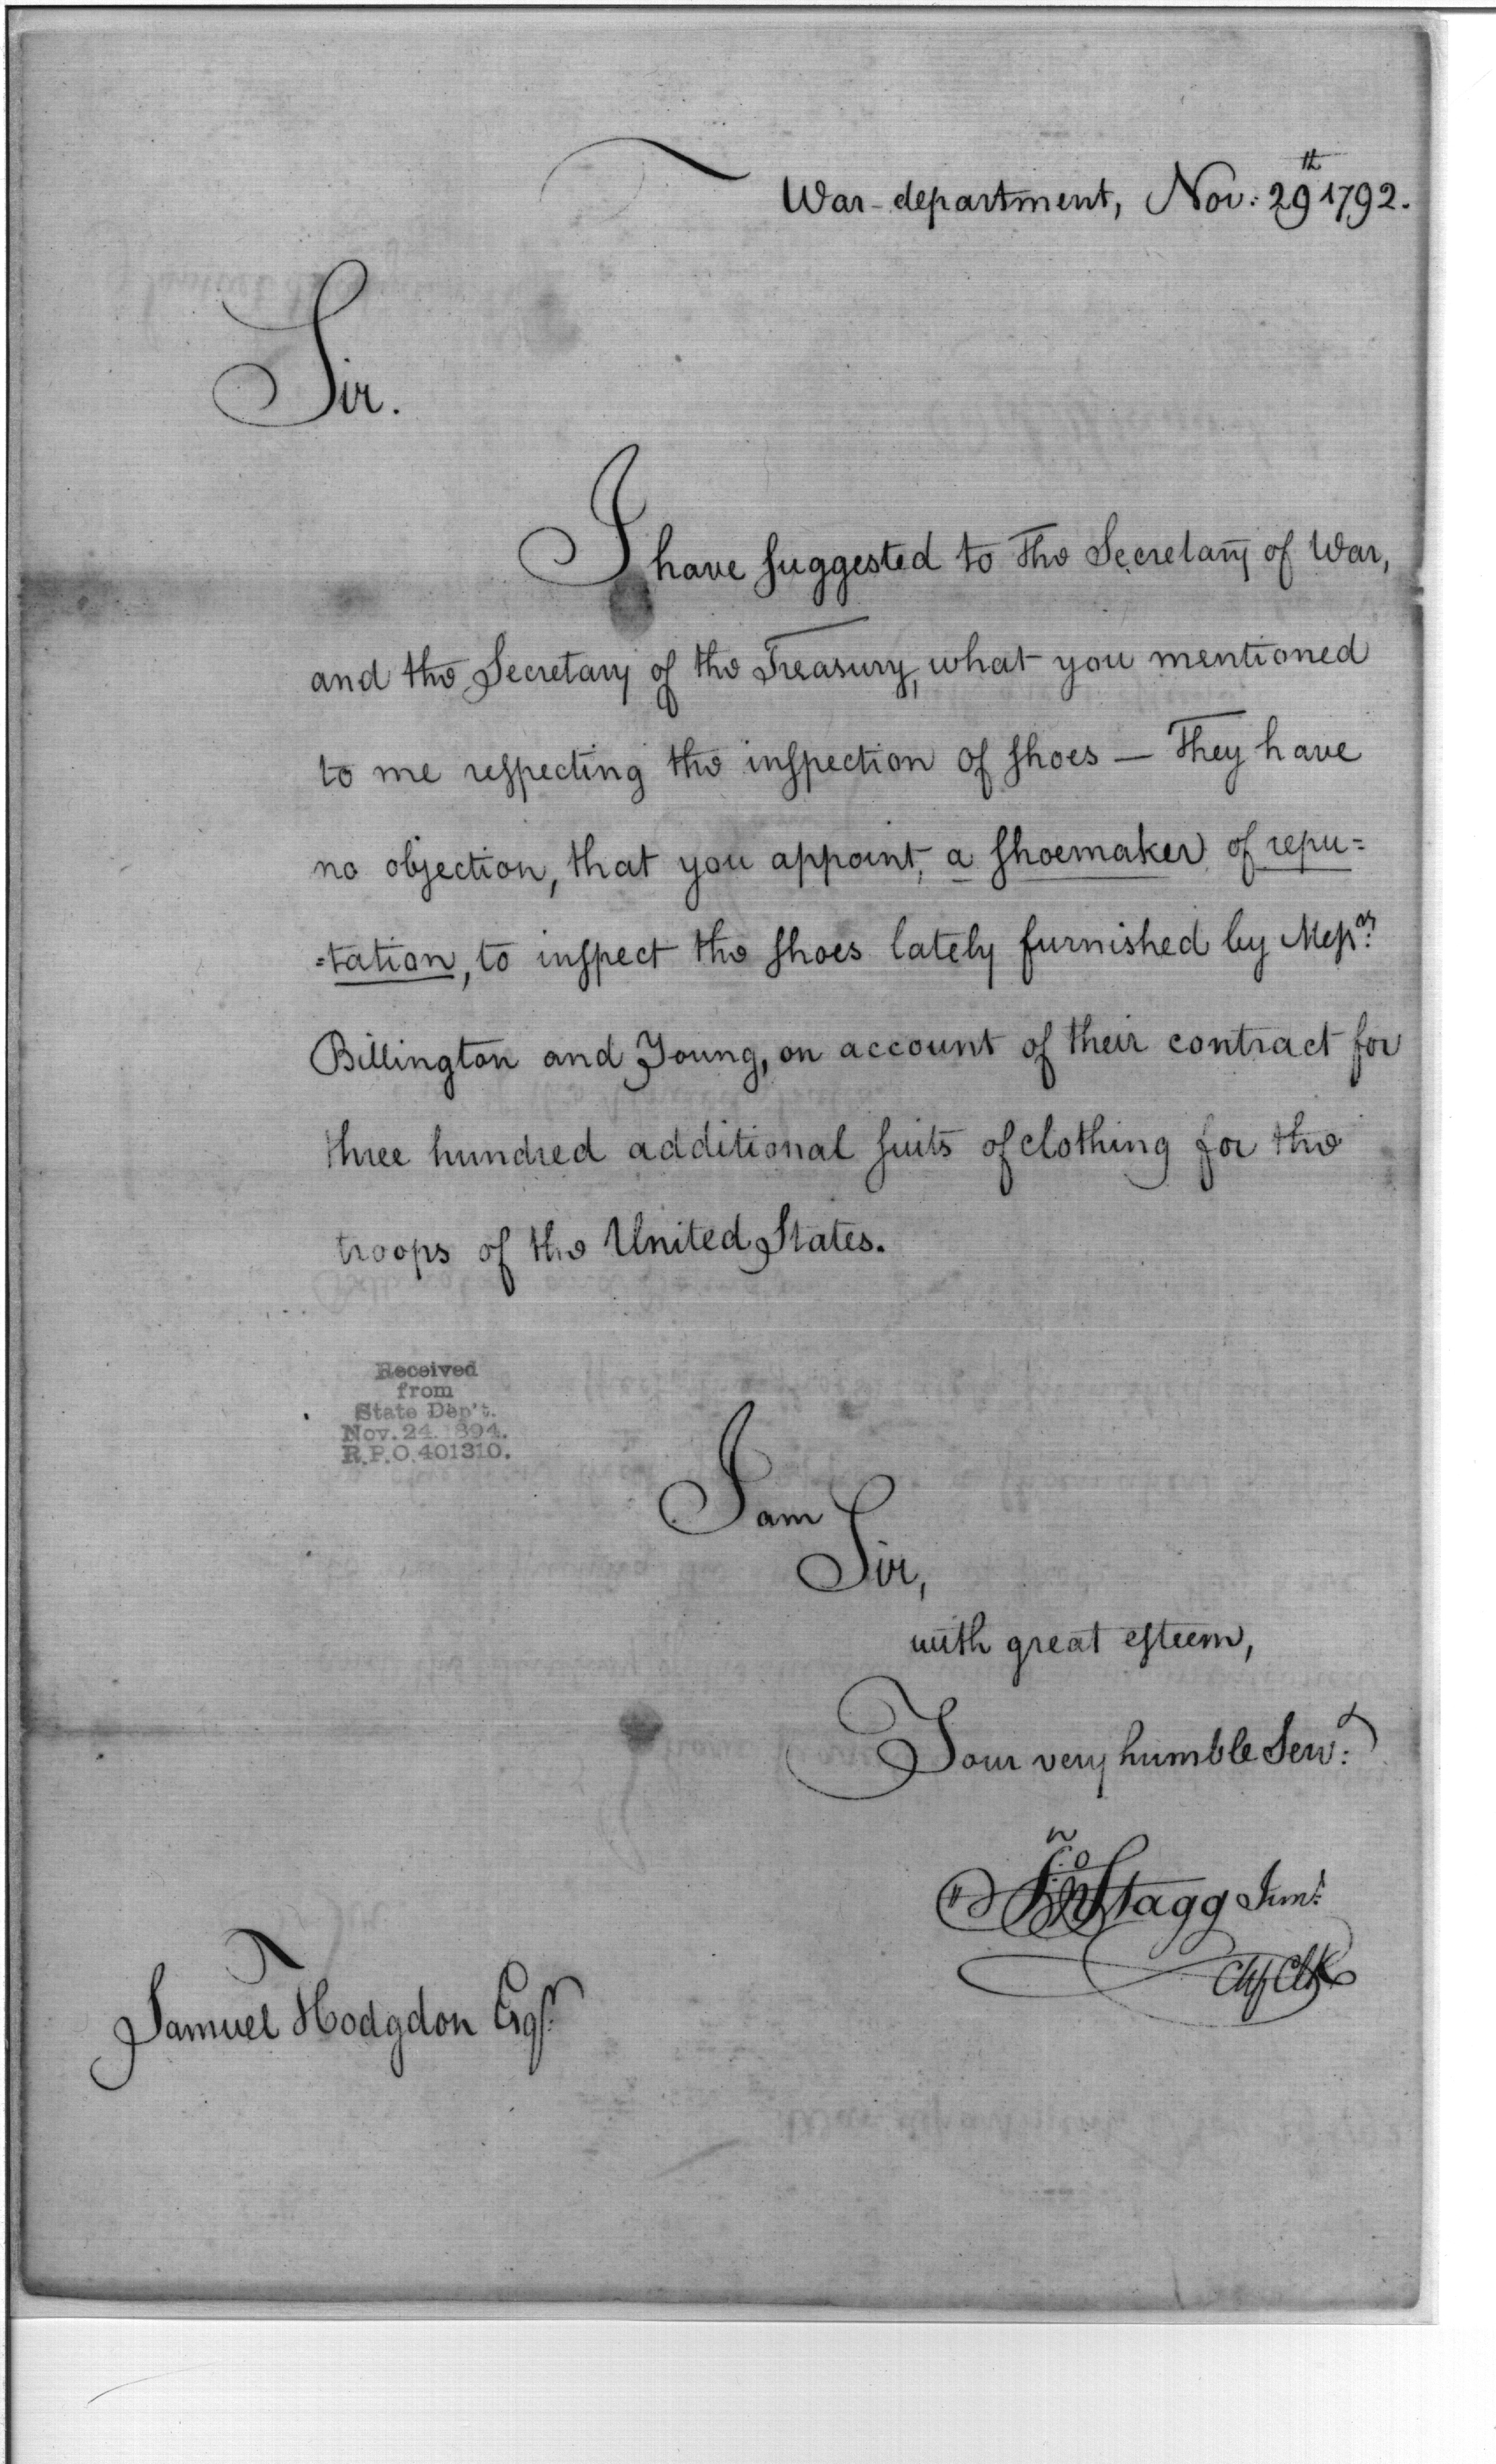 War-department, Nov: 29th 1792.
Sir.
I have suggested to the Secretary of War,
and the Secretary of the Treasury, what you mentioned
to me respecting the inspection of shoes — They have
no objection, that you appoint, a shoemaker of repu=
=tation, to inspect the shoes lately furnished by Messrs.
Billington and Young, on account of their contract for
three hundred additional suits of clothing for the
troops of the United States.
Received
from
State Dep't.
Nov. 24. 1894.
R.P.O. 401310.
I am
Sir,
with great esteem,
Your very humble Servt:
Jno Stagg Junr:
Chf Clk
Samuel Hodgdon Esqr.